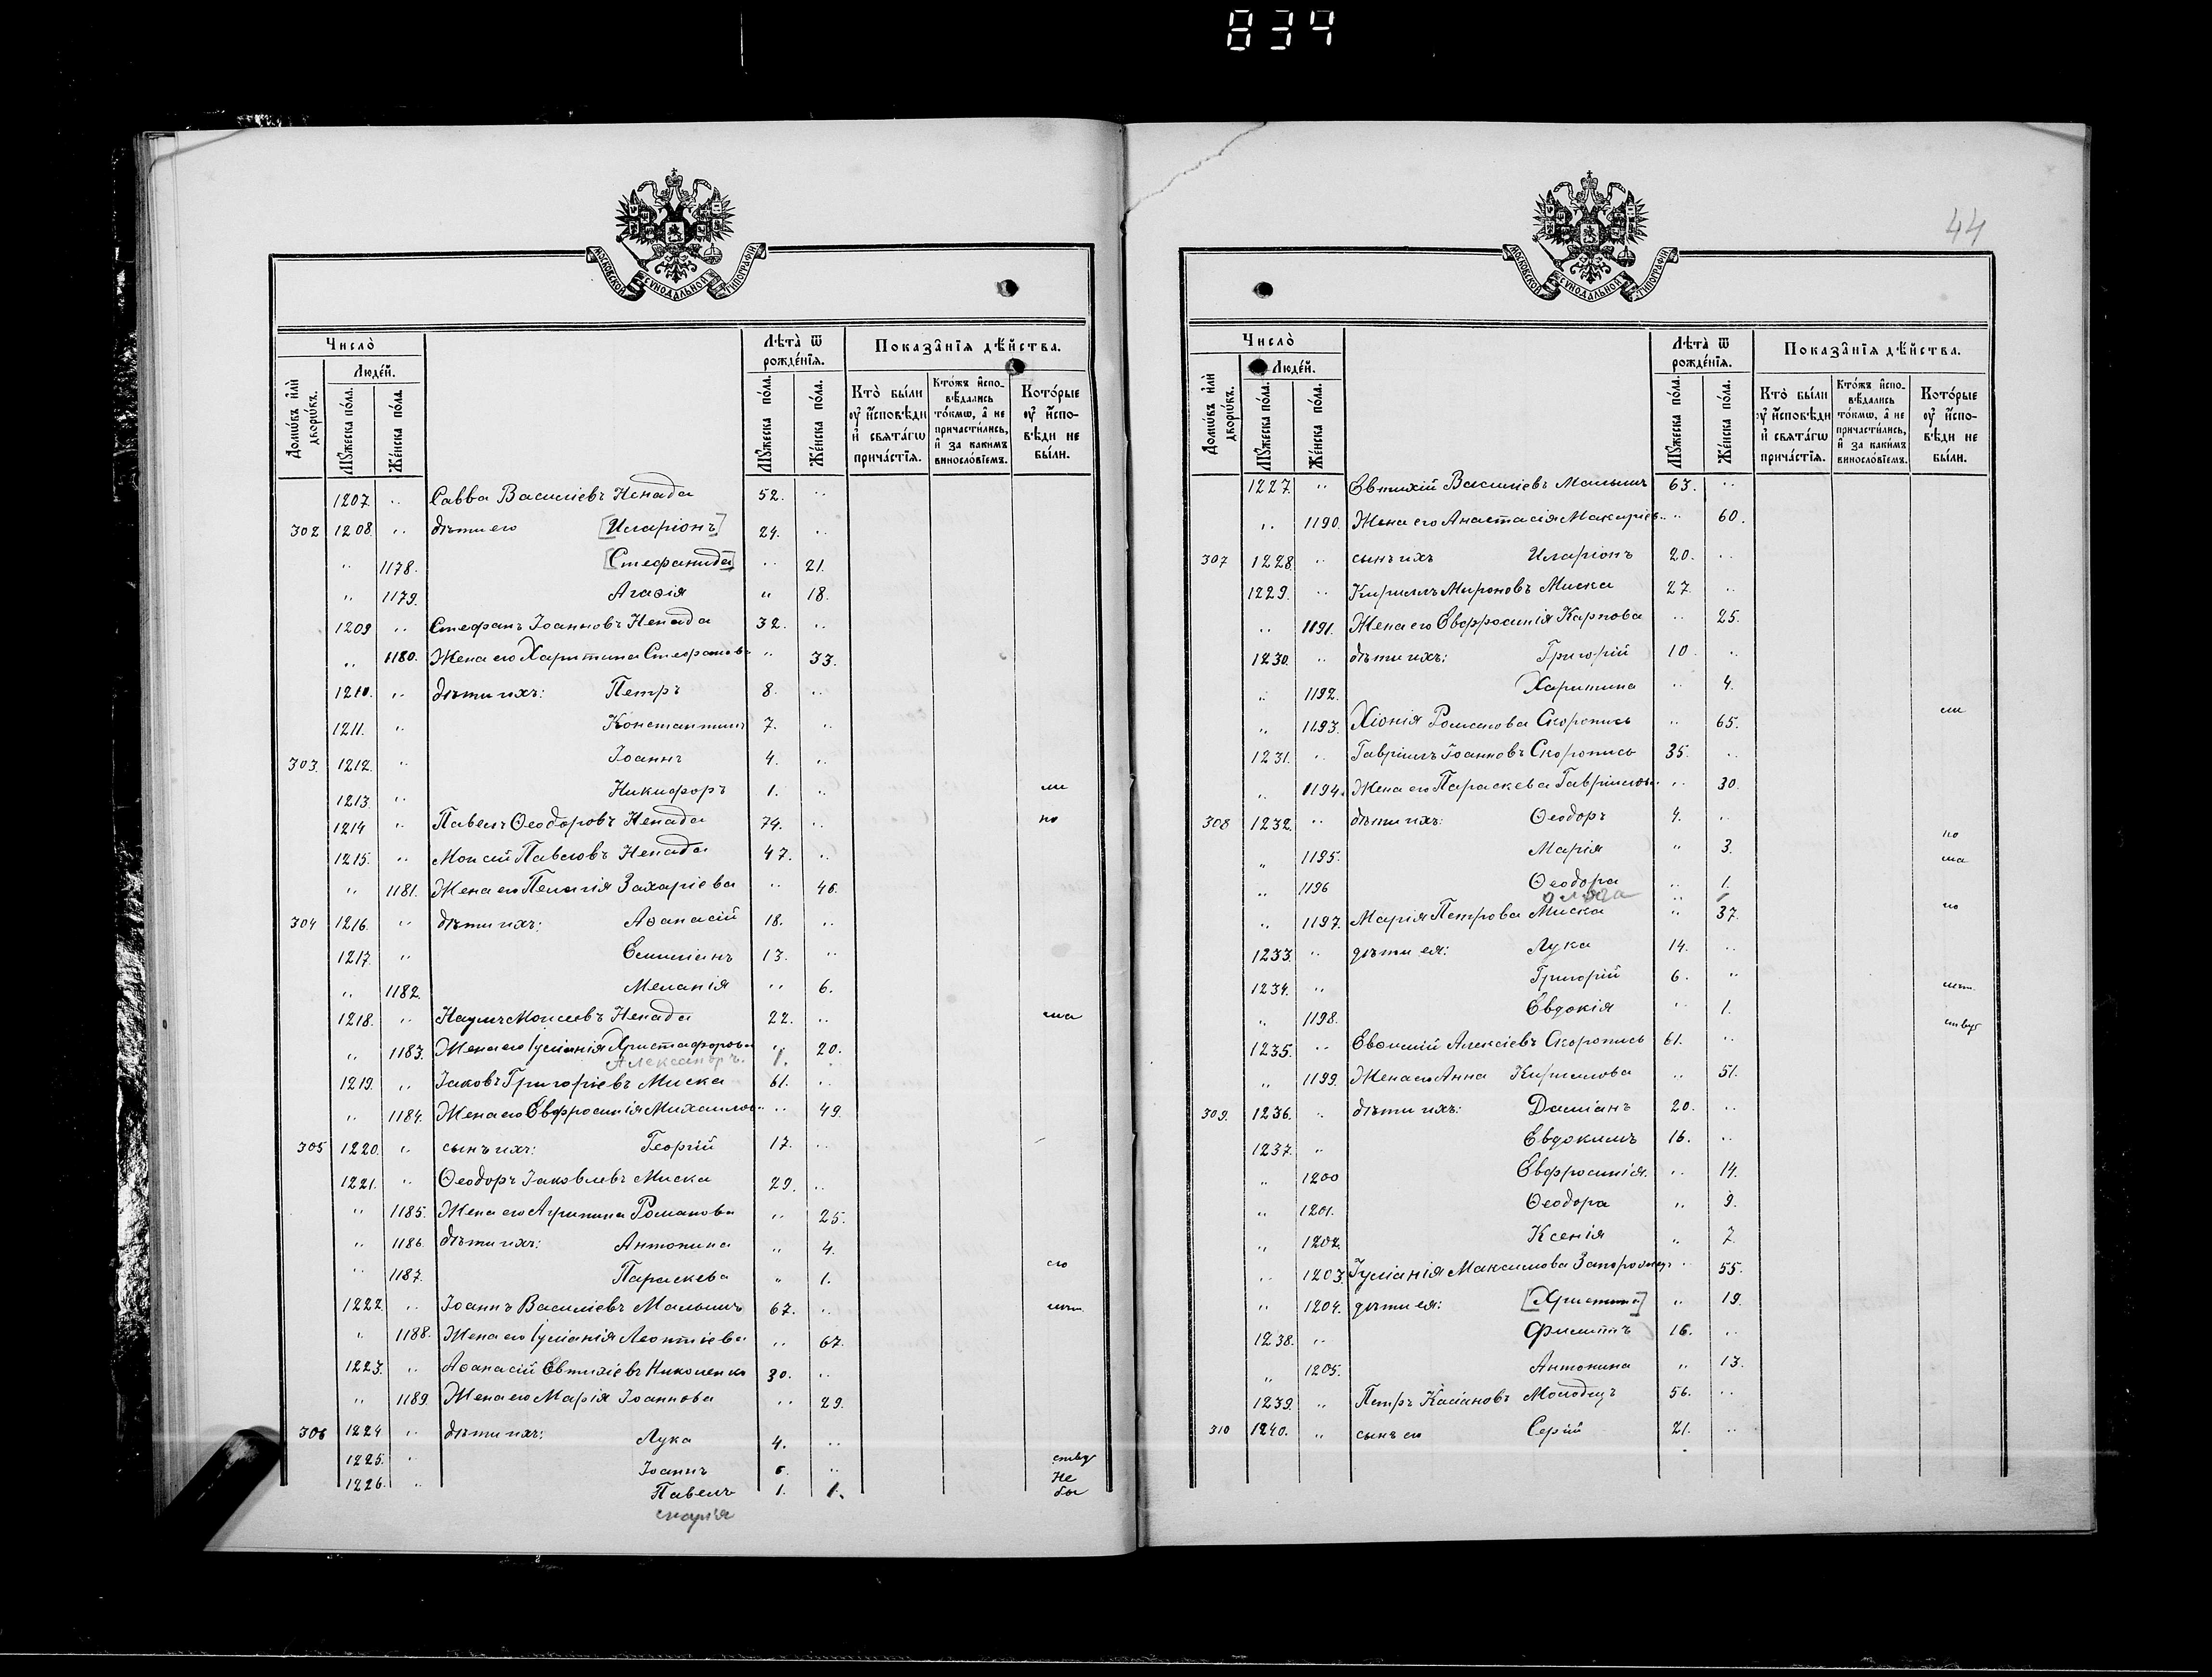 834
МОСКОВСКОЙ СѴНОДАЛЬНОЙ ТИПОГРАФІИ
Число̀
Домѡ́въ и҆лѝ дворѡ́въ.
Люде́й.
Мꙋ́жеска по́ла.
Же́нска по́ла.
Лѣта̀ ѿ рожде́нїѧ.
Мꙋ́жеска по́ла.
Же́нска по́ла.
Показа̑нїѧ дѣ́йства.
Кто̀ бы́ли ᲂу҆ и҆сповѣди и҆ свѧта́гѡ прича́стїѧ.
Кто́жъ и҆сповѣ́дались то́кмѡ, а҆ не причасти́лись, и҆ за каки́мъ виносло́вїемъ.
Кото́рые ᲂу҆ и҆сповѣди не бы́ли.
1207. " Савва Василіевъ Ненада 52. "
302 1208. " дѣти его [Иларіонъ] 24. "
" 1178. [Стефанида] " 21.
" 1179. Агаѳія " 18.
1209 " Стефанъ Іоанновъ Ненада 32. "
" 1180. Жена его Харитина Стефанова " 33.
1210. " дѣти ихъ: Петръ 8. "
1211. " Константинъ 7. "
303. 1212. " Іоаннъ 4. "
1213. " Никифоръ 1. "
1214 " Павелъ Ѳеодоровъ Ненада 74. " по
1215. " Моисей Павловъ Ненада 47. "
" 1181. Жена его Пелагія Захаріева " 46.
304 1216. " дѣти ихъ: Аѳанасій 18. "
1217. " Емиліанъ 13. "
" 1182. Меланія " 6.
1218. " Наумъ Моисеевъ Ненада 22. "
" 1183. Жена его Іуліанія Христофорова " 20.
Александръ. 1.
1219. " Іаковъ Григоріевъ Миска 61. "
" 1184. Жена его Евфросинія Михаилова " 49
305 1220. " сынъ ихъ: Георгій 17. "
1221. " Ѳеодоръ Іаковлевъ Миска 29. "
" 1185. Жена его Агрипина Романова " 25.
" 1186. дѣти ихъ: Антонина " 4.
" 1187. Параскева " 1.
1222. " Іоаннъ Василіевъ Малышъ 67. "
" 1188. Жена его Іуліанія Леонтіева " 67.
1223. " Аѳанасій Евтихіевъ Николенко 30. "
" 1189. Жена его Марія Іоаннова " 29.
306 1224 " дѣти ихъ: Лука 4. "
1225. " Іоаннъ 6. " ству
1226. " Павелъ 1. 1. Не бы
марія
44
МОСКОВСКОЙ СѴНОДАЛЬНОЙ ТИПОГРАФІИ
Число̀
Домѡ́въ и҆лѝ дворѡ́въ.
Люде́й.
Мꙋ́жеска по́ла.
Же́нска по́ла.
Лѣта̀ ѿ рожде́нїѧ.
Мꙋ́жеска по́ла.
Же́нска по́ла.
Показа̑нїѧ дѣ́йства.
Кто̀ бы́ли ᲂу҆ и҆сповѣди и҆ свѧта́гѡ прича́стїѧ.
Кто́жъ и҆сповѣ́дались то́кмѡ, а҆ не причасти́лись, и҆ за каки́мъ виносло́вїемъ.
Кото́рые ᲂу҆ и҆сповѣди не бы́ли.
1227. " Евтихій Василіевъ Малышъ 63. "
" 1190. Жена его Анастасія Макаріев. " 60.
307 1228. " сынъ ихъ Иларіонъ 20. "
1229. " Кириллъ Мироновъ Миска 27. "
" 1191. Жена его Евфросинія Карпова " 25.
1230. " дѣти ихъ: Григорій 10. "
" 1192. Харитина " 4.
" 1193. Хіонія Романова Скоропись " 65.
1231. " Гавріилъ Іоанновъ Скоропись 35. "
" 1194. Жена его Параскева Гавріилова " 30.
308 1232. " дѣти ихъ: Ѳеодоръ 4. "
" 1195. Марія " 3.
" 1196 Ѳеодора " 1.
Ольга
" 1197. Марія Петрова Миска " 37.
1233. " дѣти ея: Лука 14. "
1234. " Григорій 6. "
" 1198. Евдокія " 1.
1235. " Евѳимій Алексіевъ Скоропись 61. " ству
" 1199. Жена его Анна Кириллова " 51.
309. 1236. " дѣти ихъ: Даміанъ 20. "
1237. " Евдокимъ 16. "
" 1200 Евфросинія. " 14.
" 1201. Ѳеодора " 9.
" 1202. Ксенія " 7.
" 1203. Іуліанія Максимова Запорожец " 55.
" 1204. дѣти ея: [Христина] " 19.
1238. " Филиппъ 16. "
" 1205. Антонина " 13.
1239. " Петръ Касіановъ Молодецъ 56. "
310 1240. " сынъ его Сергій 21. "